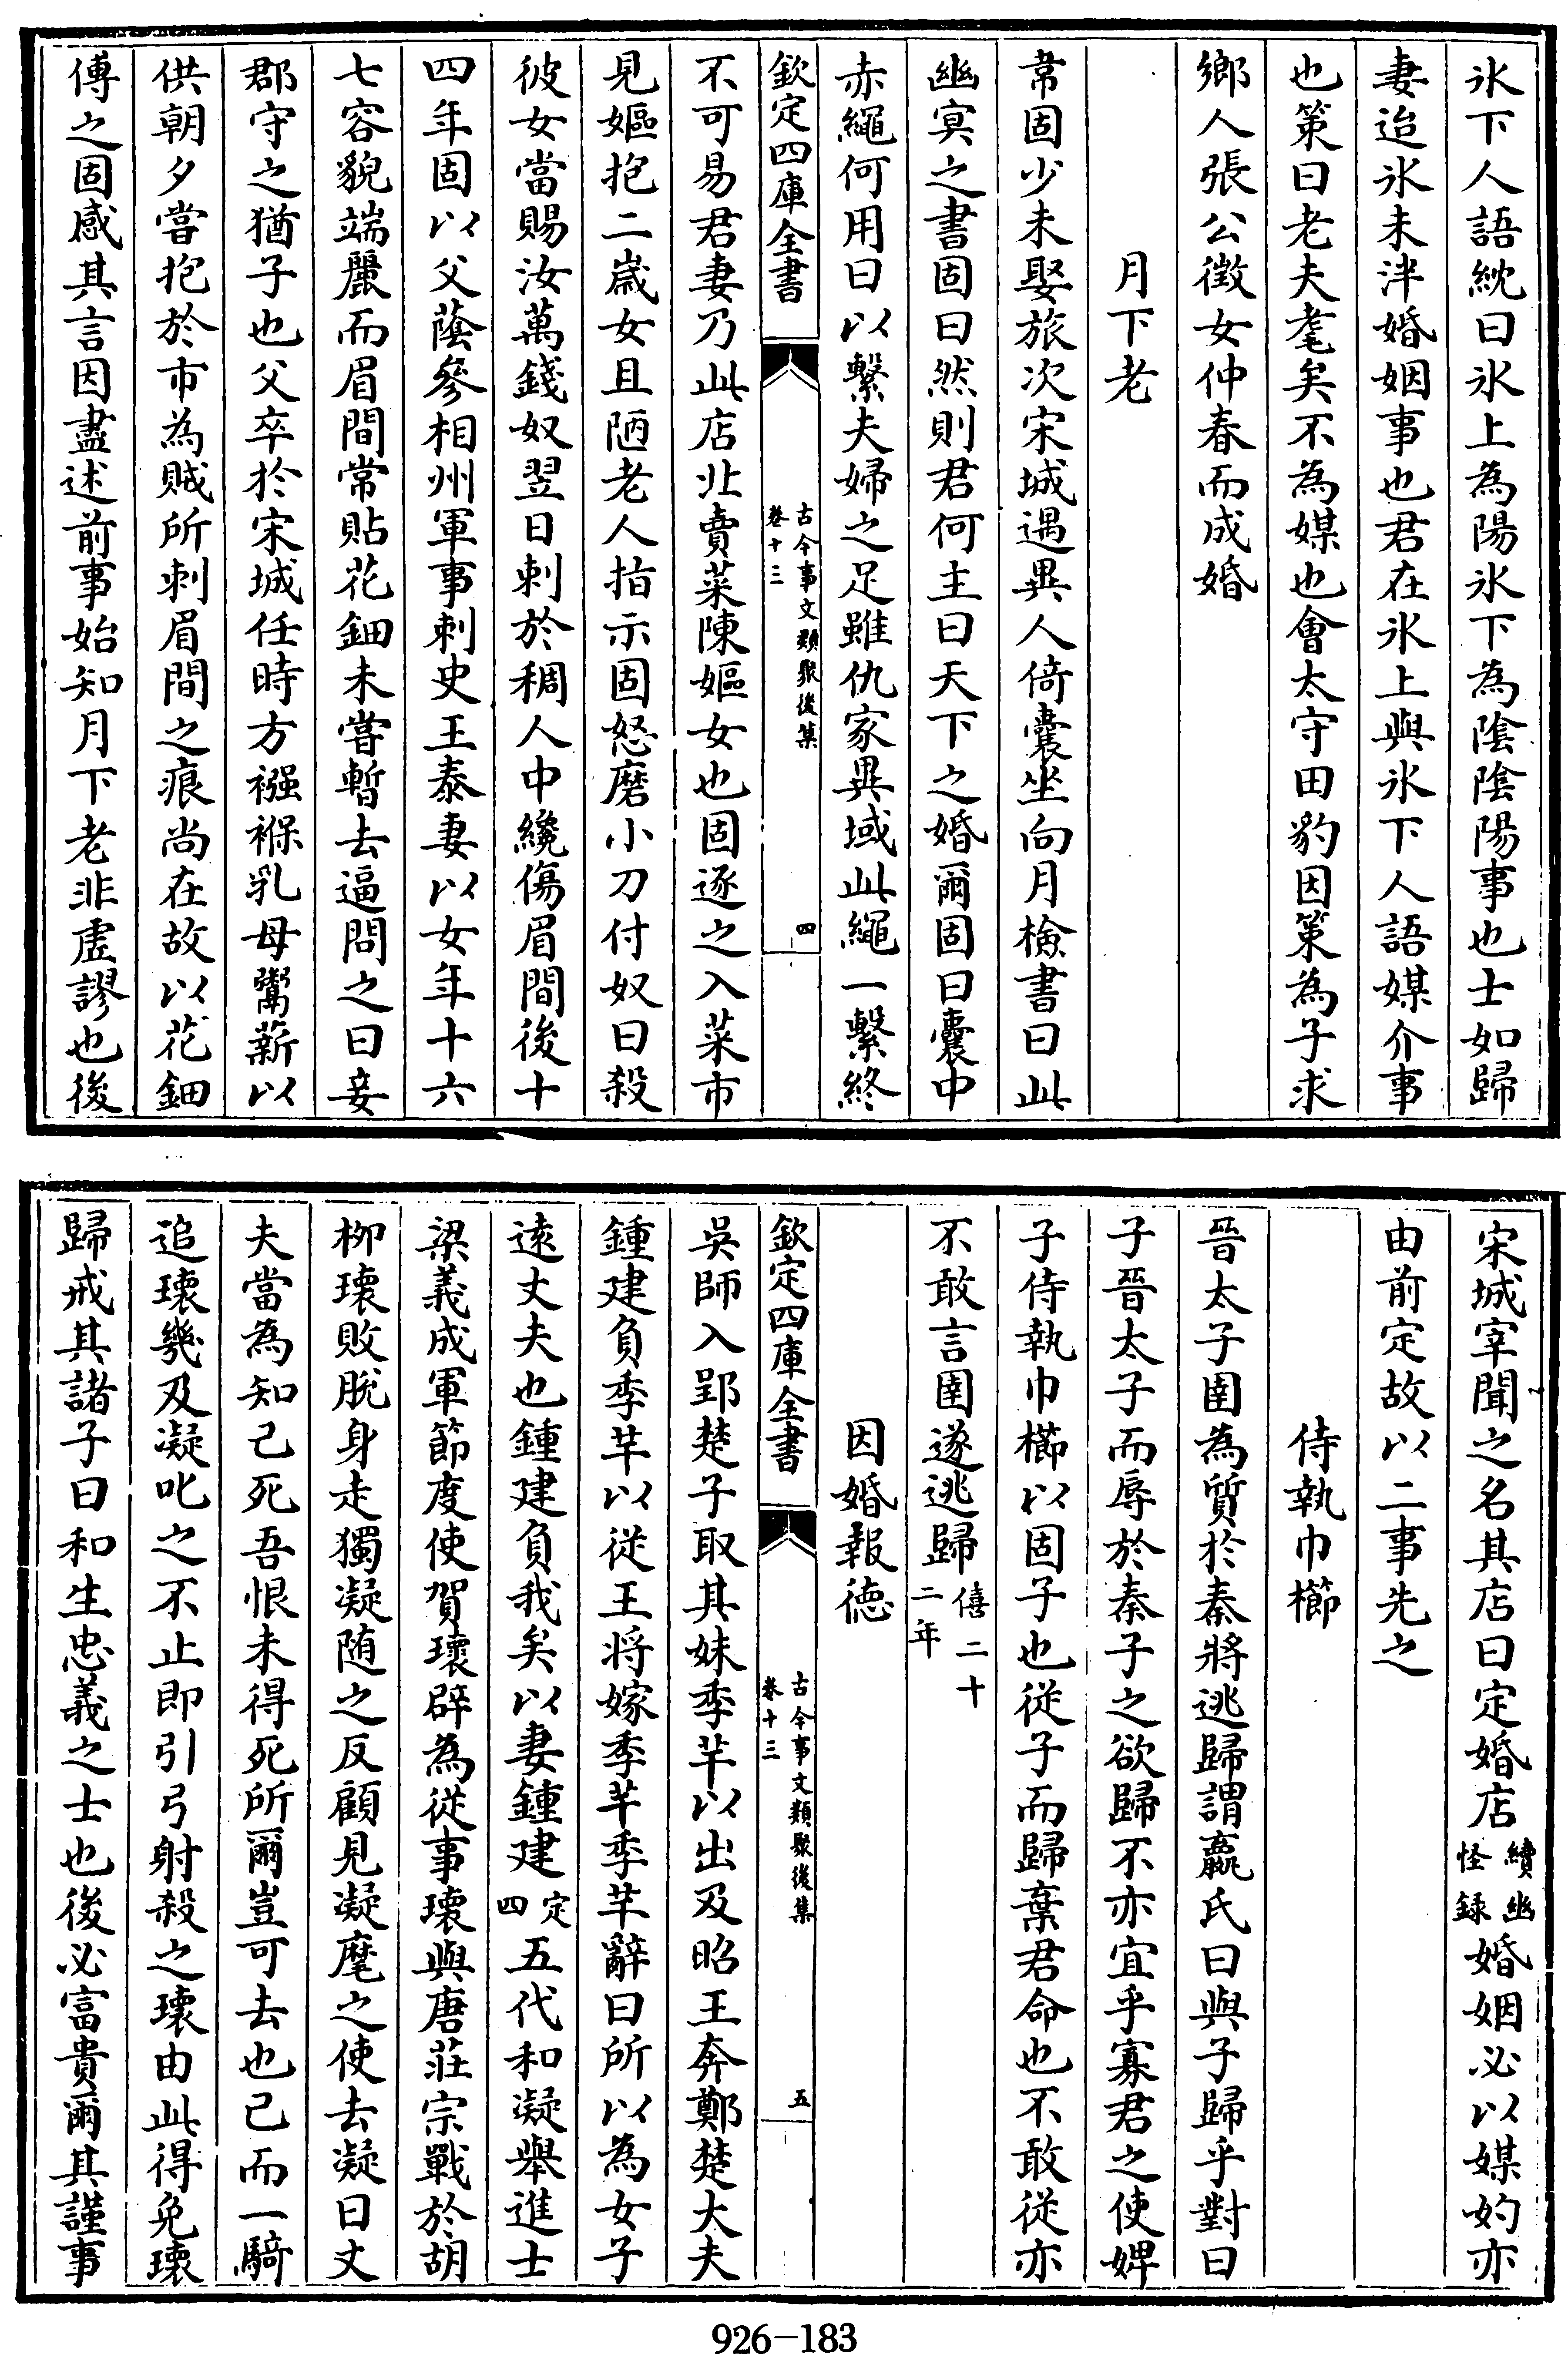 氷下人語紞曰氷上為陽氷下為隂隂陽事也士如歸
妻迨氷未泮婚姻事也君在氷上與氷下人語媒介事
也策曰老夫耄矣不為媒也會太守田豹因策為子求
鄉人張公徵女仲春而成婚
月下老
韋固少未娶旅次宋城遇異人倚囊坐向月檢書曰此
幽冥之書固曰然則君何主曰天下之婚爾固曰囊中
赤繩何用曰以繫夫婦之足雖仇家異域此繩一繫終
欽定四庫全書
古今事文類聚後集
卷十三
四
不可易君妻乃此店北賣菜陳嫗女也固逐之入菜市
見嫗抱二歲女且陋老人指示固怒磨小刀付奴曰殺
彼女當賜汝萬錢奴翌日刺於稠人中纔傷眉間後十
四年固以父蔭參相州軍事刺史王泰妻以女年十六
七容貌端麗而眉間常貼花鈿未嘗暫去逼問之曰妾
郡守之猶子也父卒於宋城任時方襁褓乳母鬻薪以
供朝夕嘗抱於市為賊所刺眉間之痕尚在故以花鈿
傅之固感其言因盡述前事始知月下老非虛謬也後
宋城宰聞之名其店曰定婚店續幽怪録婚姻必以媒妁亦
由前定故以二事先之
侍執巾櫛
晉太子圉為質於秦將逃歸謂嬴氏曰與子歸乎對曰
子晉太子而辱於秦子之欲歸不亦宜乎寡君之使婢
子侍執巾櫛以固子也從子而歸棄君命也不敢從亦
不敢言圉遂逃歸僖二十二年
因婚報德
欽定四庫全書
古今事文類聚後集
卷十三
五
吳師入郢楚子取其妹季芊以出及昭王奔鄭楚大夫
鍾建負季芊以從王將嫁季芊季芊辭曰所以為女子
逺丈夫也鍾建負我矣以妻鍾建定四五代和凝舉進士
梁義成軍節度使賀瓌辟為從事瓌與唐莊宗戰於胡
柳瓌敗脫身走獨凝随之反顧見凝麾之使去凝曰丈
夫當為知己死吾恨未得死所爾豈可去也已而一騎
追瓌幾及凝叱之不止即引弓射殺之瓌由此得免瓌
歸戒其諸子曰和生忠義之士也後必富貴爾其謹事
926-183